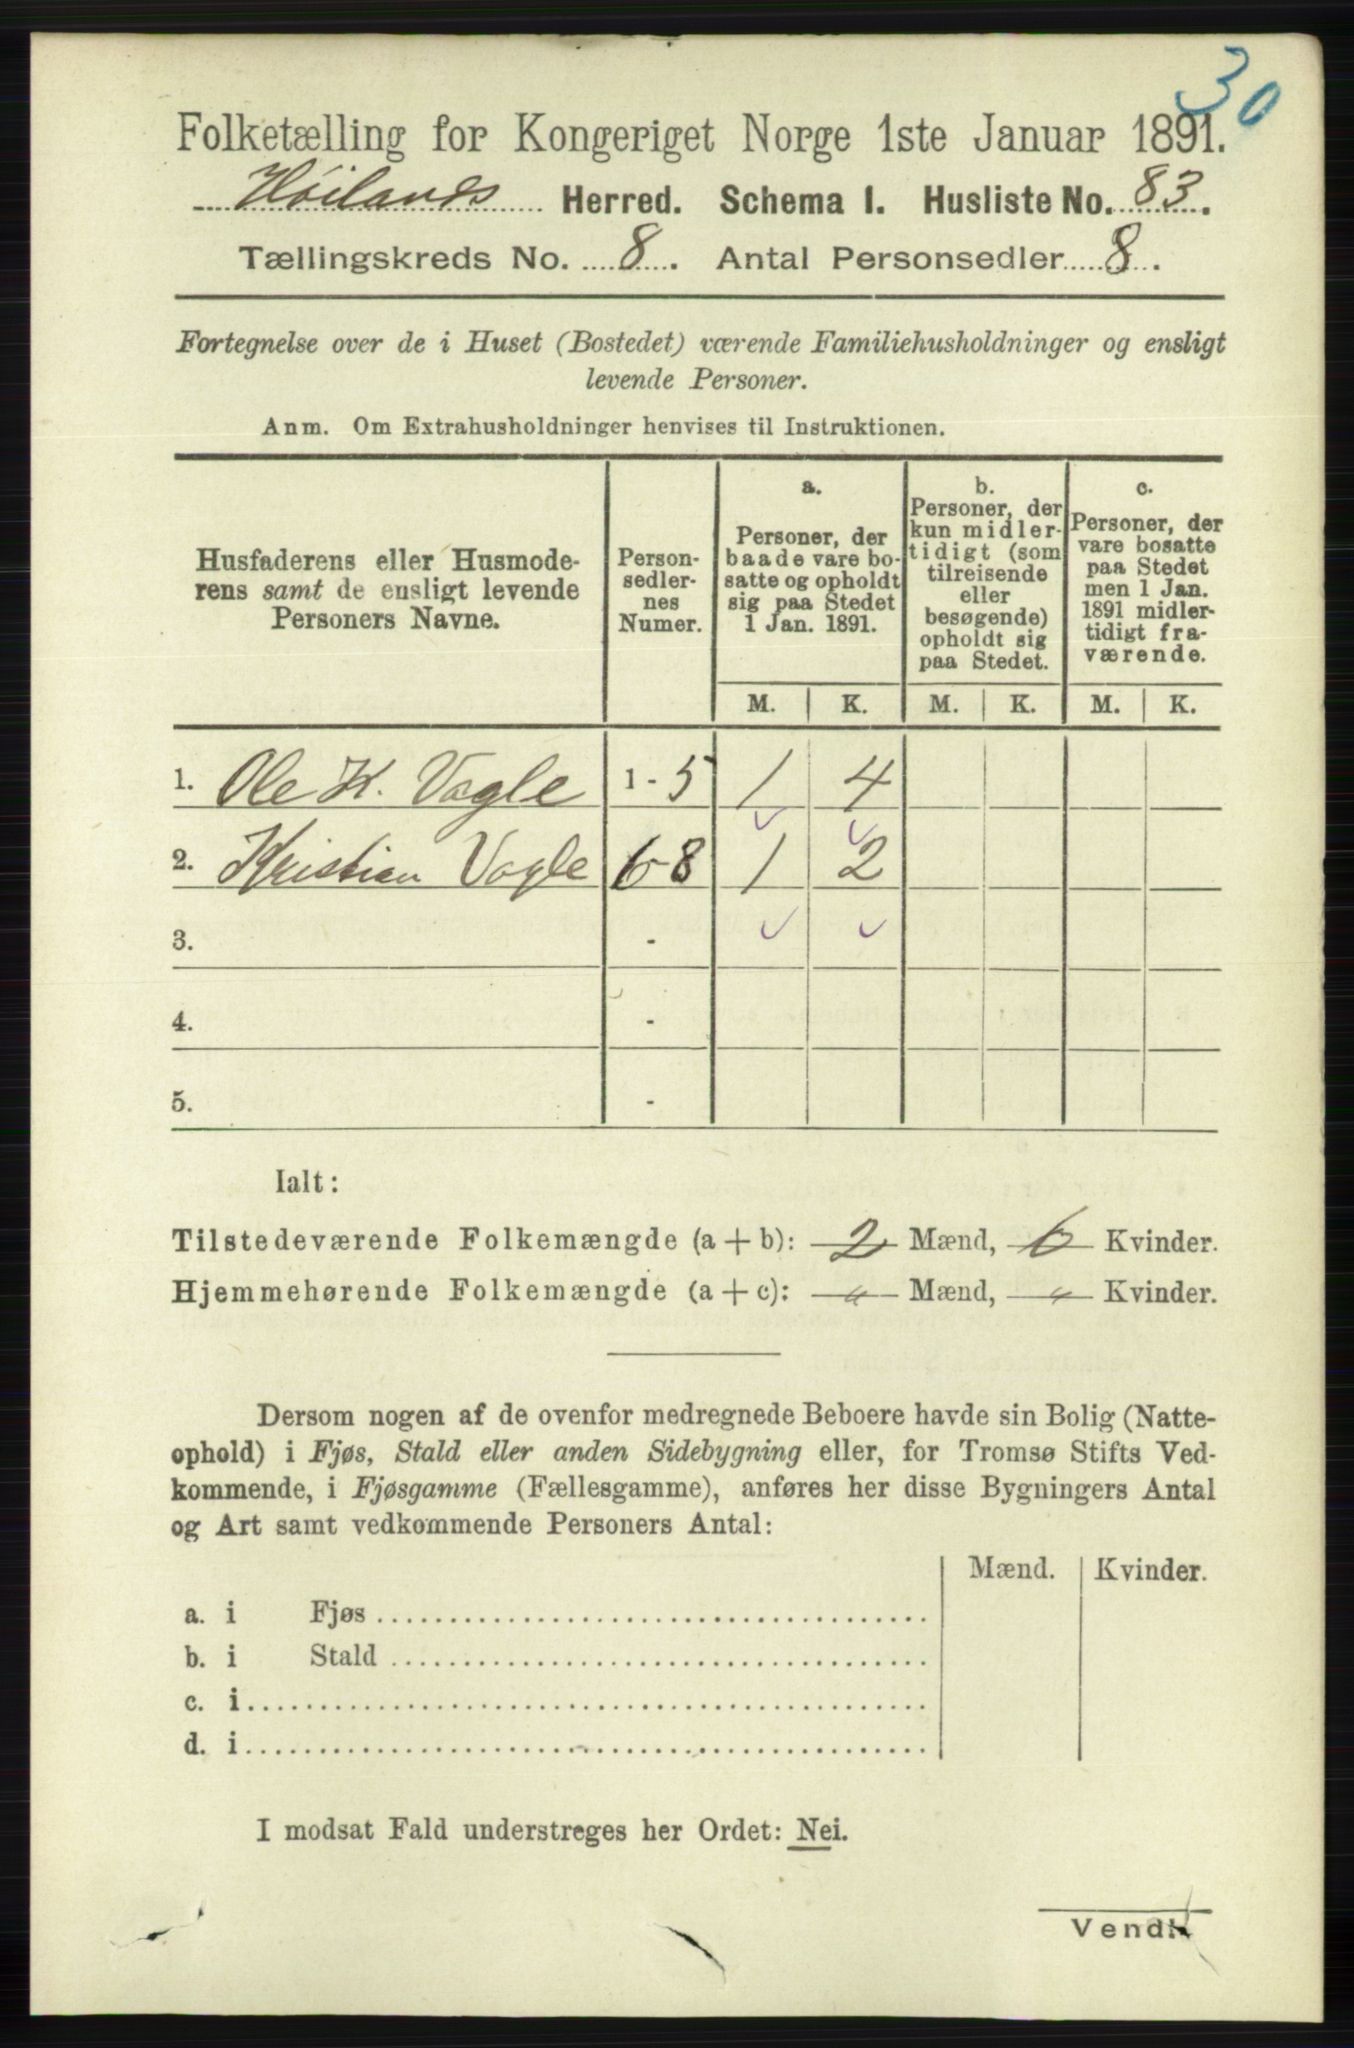 30
Folketælling for Kongeriget Norge 1ste Januar 1891.
Höilands Herred. Schema I. Husliste No. 83.
Tællingskreds No. 8. Antal Personsedler 8.
Fortegnelse over de i Huset (Bostedet) værende Familiehusholdninger og ensligt
levende Personer.
Anm. Om Extrahusholdninger henvises til Instruktionen.
Husfaderens eller Husmode-
rens samt de ensligt levende
Personers Navne.
Person-
sedler-
nes
Numer.
a.
Personer, der
baade vare bo-
satte og opholdt
sig paa Stedet
1 Jan. 1891.
b.
Personer, der
kun midler-
tidigt (som
tilreisende
eller
besøgende)
opholdt sig
paa Stedet.
c.
Personer, der
vare bosatte
paa Stedet
men 1 Jan.
1891 midler-
tidigt fra-
værende.
M. K. M. K. M. K.
1. Ole K. Vagle 1-5 1 4
2. Kristian Vagle 6-8 1 2
3. -
4. -
5. -
Ialt:
Tilstedeværende Folkemængde (a + b): 2 Mænd, 6 Kvinder.
Hjemmehørende Folkemængde (a + c): " Mænd, " Kvinder.
Dersom nogen af de ovenfor medregnede Beboere havde sin Bolig (Natte-
ophold) i Fjøs, Stald eller anden Sidebygning eller, for Tromsø Stifts Ved-
kommende, i Fjøsgamme (Fællesgamme), anføres her disse Bygningers Antal
og Art samt vedkommende Personers Antal:
Mænd. Kvinder.
a. i Fjøs
b. i Stald
c. i
d. i
I modsat Fald understreges her Ordet: Nei.
Vend!